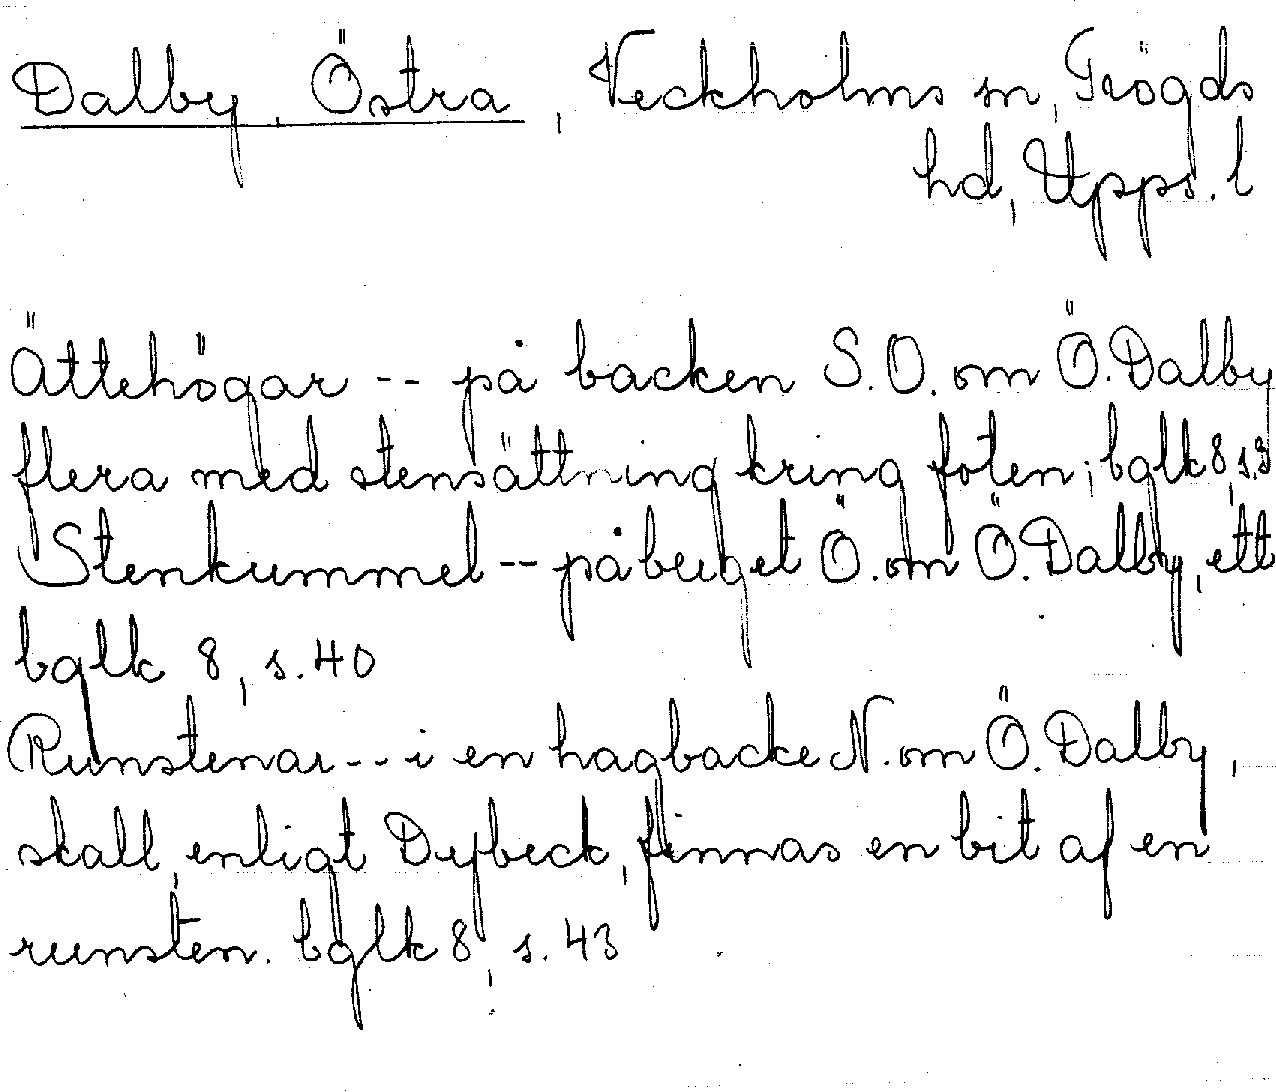 Dalby, Östra, Veckholms sn, Trögds
hd, Upps. l
Ättehögar -- på backen S.O. om Ö. Dalby
flera med stensättning kring foten; bglk 8, s.3
Stenkummel -- på berget Ö. om Ö. Dalby, ett
bglk 8, s. 40
Runstenar -- i en hagbacke N. om Ö. Dalby,
skall, enligt Dybeck, finnas en bit af en
runsten. bglk 8, s. 43